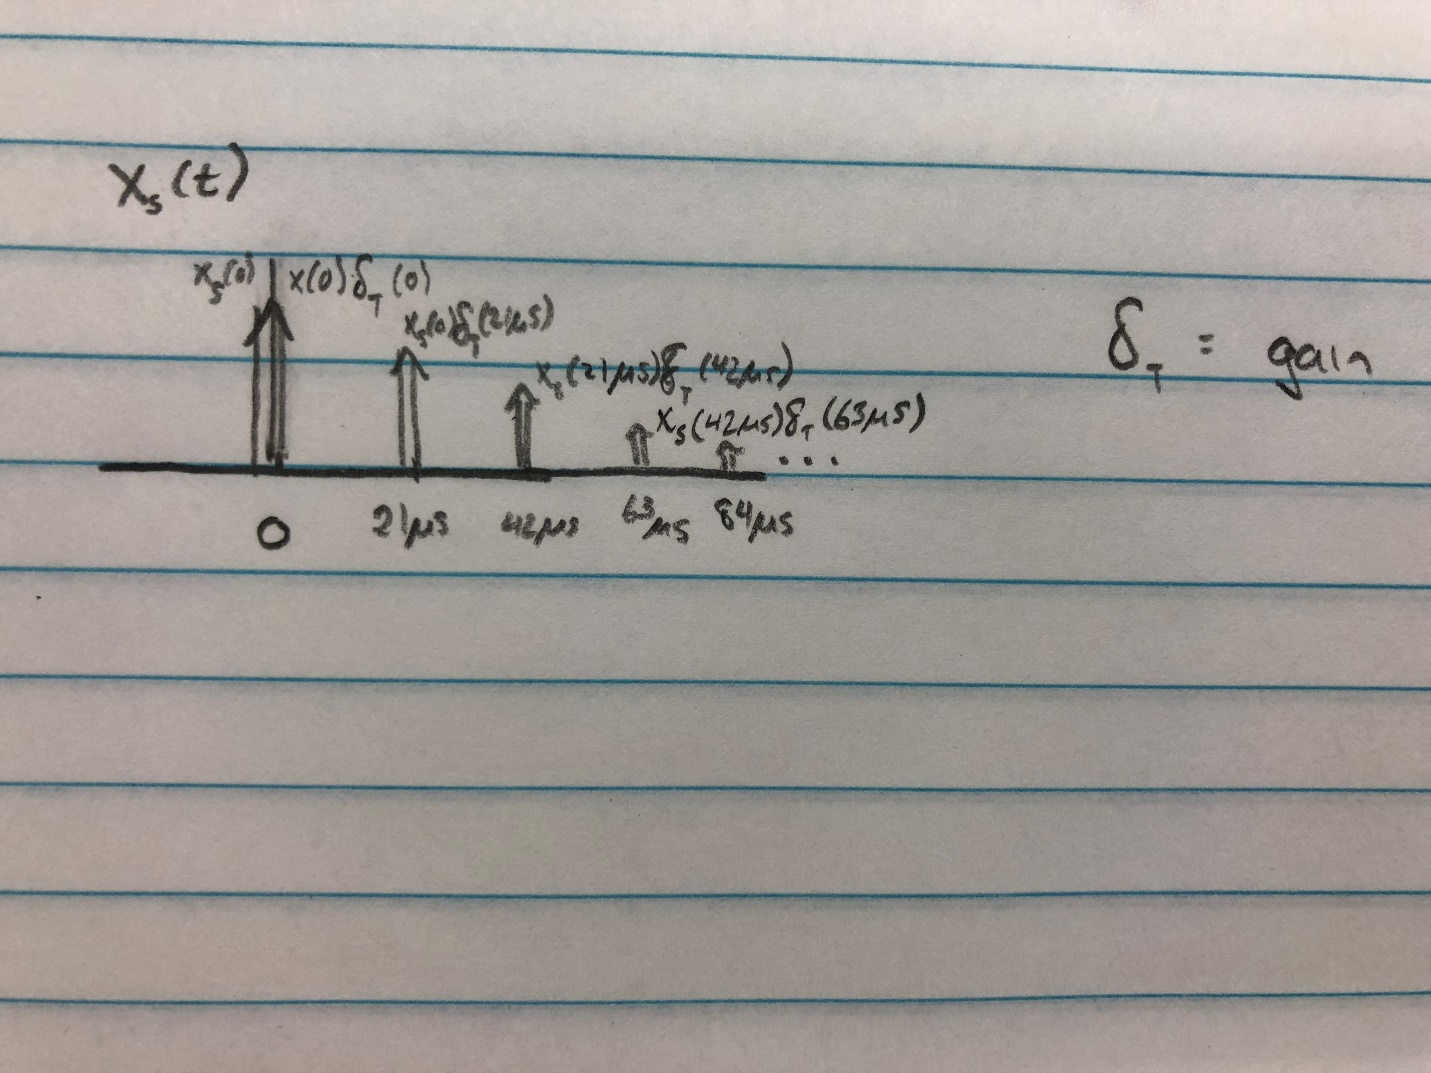 Xₛ(t)
xₛ(0) x(0)δ_T(0)
xₛ(0)δ_T(21μs)
xₛ(21μs)δ_T(42μs)
xₛ(42μs)δ_T(63μs)
...
0 21μs 42μs 63μs 84μs
δ_T = gain